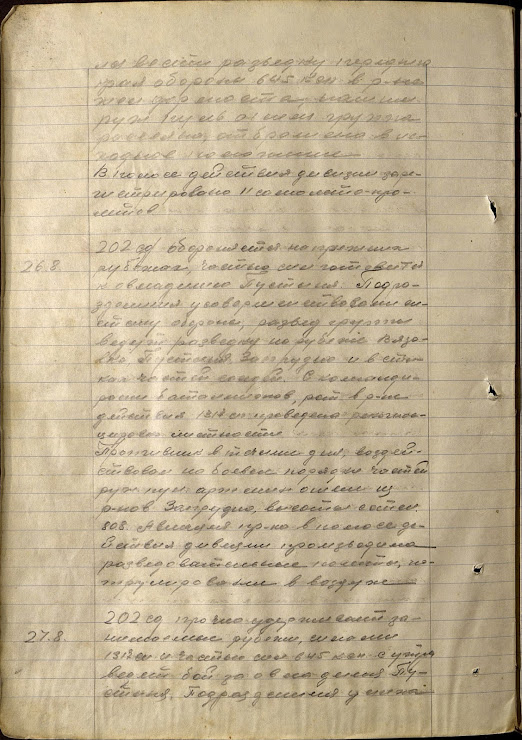 вести разведку переднего
края обороны 645 ксп в р-не
руж. пул. огнем группа
разведки, отброшена в ис-
ходное положение
В полосе действия дивизии заре-
гистрировано 11 самолето-про-
летов
202 сд обороняется на прежних
26.8. рубежах, частью сил готовится
к овладению Пустыня. Подра-
зделения усовершенствовали си-
стему обороны, развед. группы
ведут разведку на рубеже
Пустыня, Заигрудно и в сты-
ках частей соседей. С команди-
рами батальонов, рот в р-не
действия 1317 сп проведена рекогнос-
цировка местности
Противник в течении дня, воздей-
ствовал на боевые порядки частей
руж. пул. арт. мин. огнем из
р-нов Заигрудно, высоты
808. Авиация пр-ка в полосе де-
йствия дивизии производила
разведовательные полеты, па-
трулировали в воздухе
202 сд прочно удерживает за-
27.8. нимаемые рубежи, силами
1317 сп и частью сил 645 ксп с утра
ведет бой за овладения Пу-
стыня. Подразделения